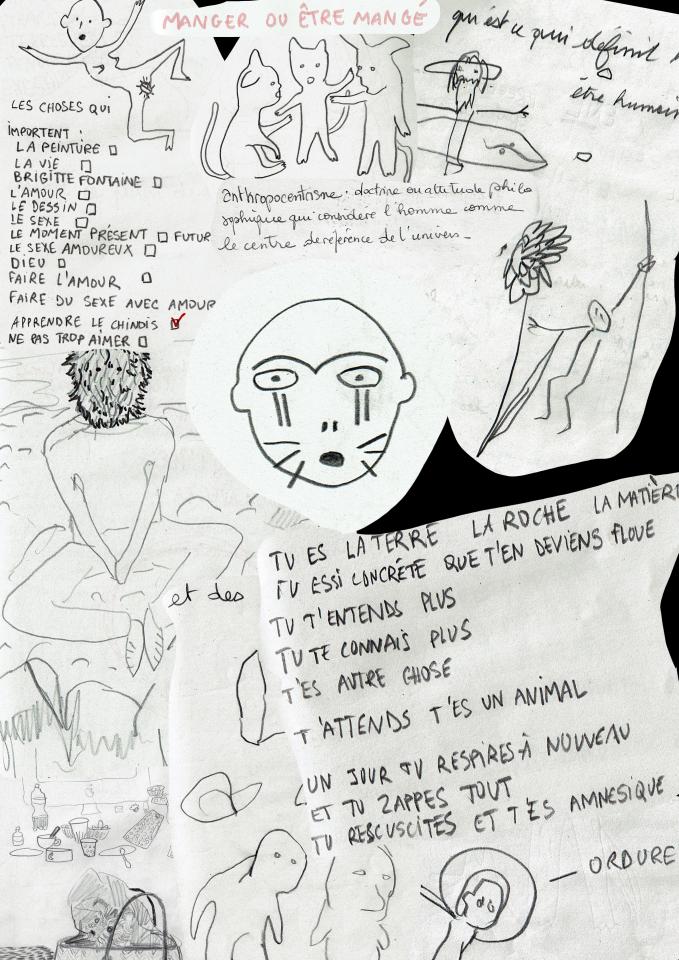 MANGER OU ÊTRE MANGÉ
qu'est ce qui définit
être humain
LES CHOSES QUI
IMPORTENT :
LA PEINTURE
LA VIE
BRIGITTE FONTAINE
L'AMOUR
LE DESSIN
LE SEXE
LE MOMENT PRÉSENT FUTUR
LE SEXE AMOUREUX
DIEU
FAIRE L'AMOUR
FAIRE DU SEXE AVEC AMOUR
APPRENDRE LE CHINOIS
NE PAS TROP AIMER
anthropocentrisme : doctrine ou attitude philo
sophique qui considère l'homme comme
le centre de référence de l'univers_
et des
TU ES LA TERRE LA ROCHE LA MATIÈRE
TU ES SI CONCRÈTE QUE T'EN DEVIENS FLOUE
TU T'ENTENDS PLUS
TU TE CONNAIS PLUS
T'ES AUTRE CHOSE
T'ATTENDS T'ES UN ANIMAL
UN JOUR TU RESPIRES À NOUVEAU
ET TU ZAPPES TOUT
TU RESCUSCITES ET T'ES AMNESIQUE
— ORDURE